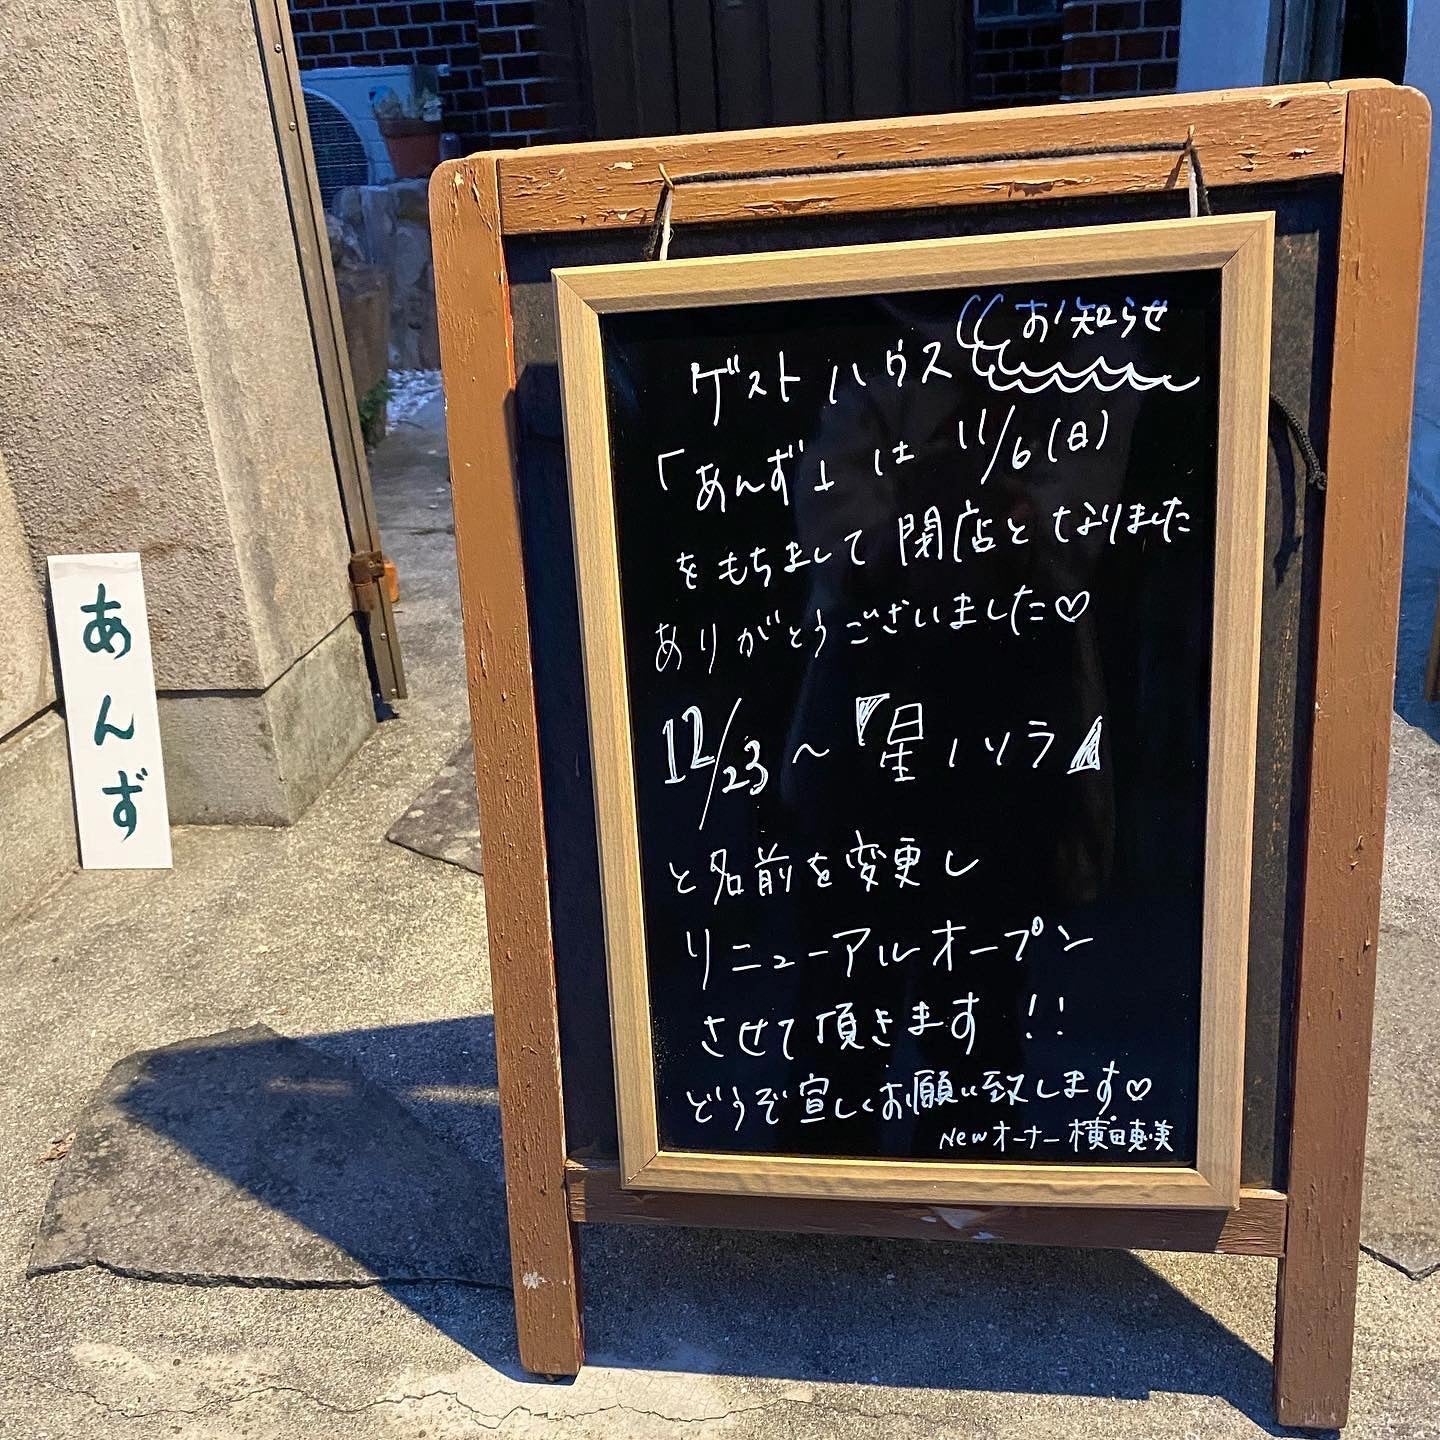 お知らせ
ゲストハウス
「あんず」は 11/6(日)
をもちまして閉店となりました
ありがとうございました♡
12/23〜『星ノソラ』
と名前を変更し
リニューアルオープン
させて頂きます!!
どうぞ宜しくお願い致します♡
Newオーナー 横田恵美
あんず